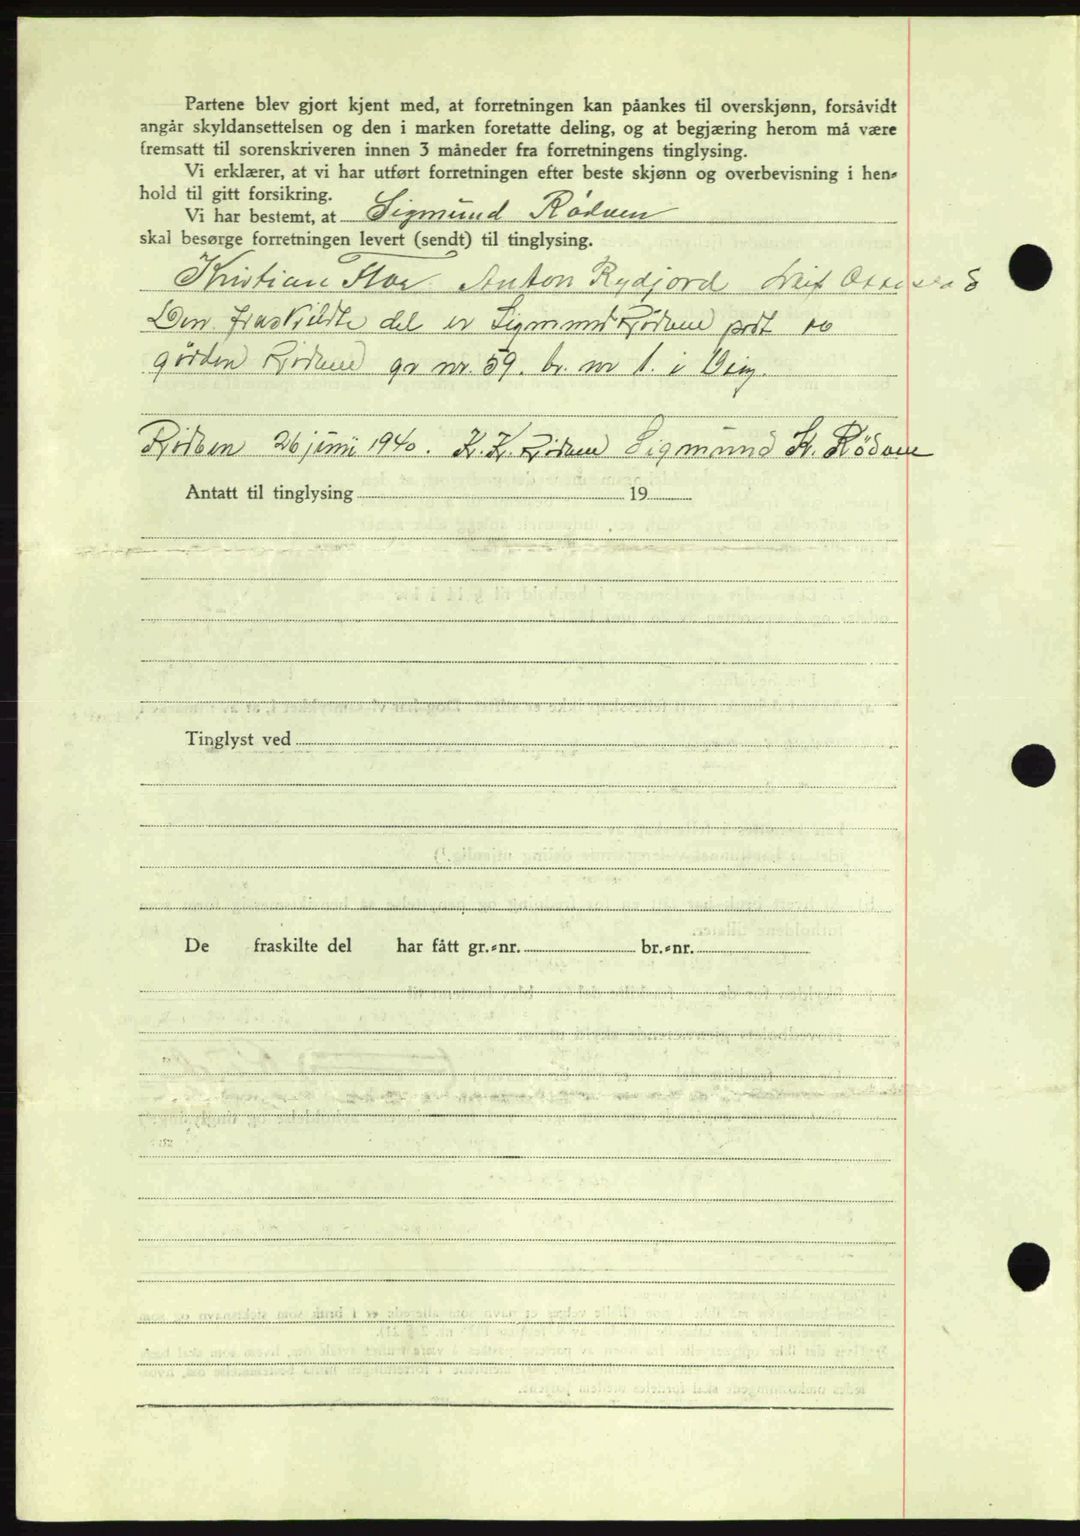 Partene blev gjort kjent med, at forretningen kan påankes til overskjønn, forsåvidt
angår skyldansettelsen og den i marken foretatte deling, og at begjæring herom må være
fremsatt til sorenskriveren innen 3 måneder fra forretningens tinglysing.
Vi erklærer, at vi har utført forretningen efter beste skjønn og overbevisning i hen-
hold til gitt forsikring.
Vi har bestemt, at Sigmund Rödven
skal besørge forretningen levert (sendt) til tinglysing.
Kristian Anton Rydjord Leif
Den fraskjildte del er Sigmund Rödven
gården Rödven gr nr. 59. br. nr 1. i
Rödven 26 juni 1940. K. K. Rödven Sigmund K. Rödven
Antatt til tinglysing 19
Tinglyst ved
De fraskilte del har fått gr.-nr. br.-nr.